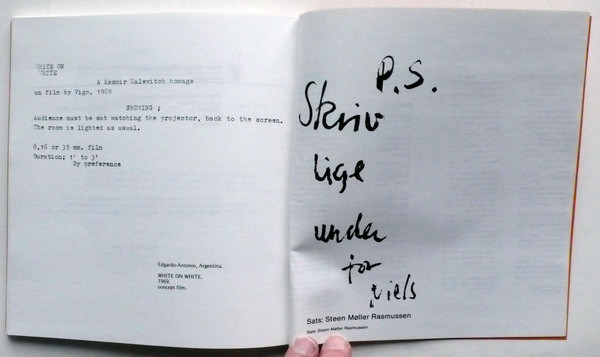 WHITE ON
WHITE
A Kasmir Malevitch homage
un film by Vigo. 1969
SHOWING ;
Audience must be sat watching the projector, back to the screen.
The room is lighted as usual.
8,16 or 35 mm. film
Duration; 1' to 3'
By preference
Edgardo-Antonio, Argentina.
WHITE ON WHITE.
1969.
concept film.
P.S.
Skriv
lige
under
for
Niels
Sats: Steen Møller Rasmussen
Sats: Steen Møller Rasmussen